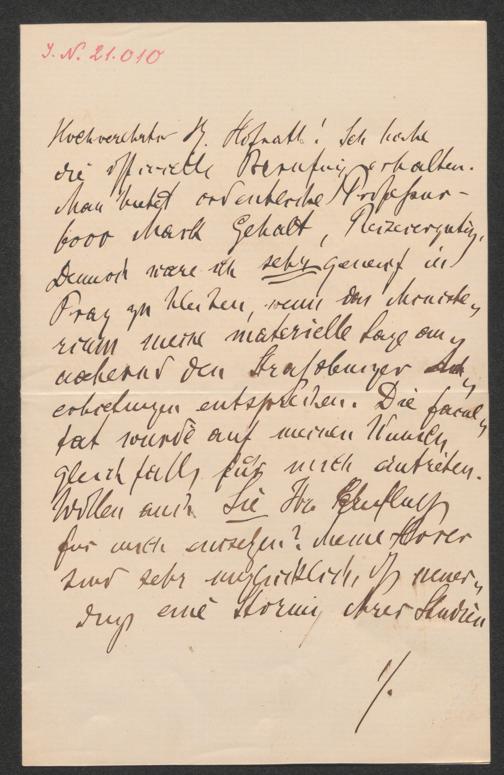 I. N. 21.010
Hochverehrter H. Hofrath! Ich habe
die officielle Berufung erhalten.
Man bietet ordentliche Professur –
6000 Mark Gehalt, Reisevergütung.
Dennoch wäre ich sehr geneigt in
Prag zu bleiben, wenn das Ministe-
rium meine materielle Lage an-
nähernd den Strassburger
erbietungen entsprechen. Die facul-
tät würde auf meinen Wunsch
gleichfalls für mich eintreten.
Wollen auch Sie Ihren Einfluss
für mich einsetzen? Meine Hörer
sind sehr unglücklich, dss neuer-
dings eine Störung ihrer Studien
./.